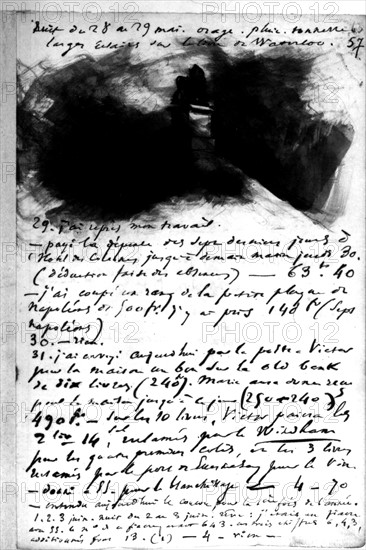 Nuit du 28 au 29 mai. orage. pluie. tonnerre
larges éclairs sur le lion de Waterloo. 57
29. j'ai repris mon travail.
— payé la dépense des sept derniers jours à
l'hôtel des Colonnes jusqu'à demain matin jeudi 30.
(déduction faite des absences) — 63 fr 40
— j'ai coupé un rang de la petite plaque de
napoléons de 500 fr. j'y ai pris 140 fr (sept
napoléons)
30. — rien.
31. j'ai envoyé aujourd'hui par la poste à Victor
pour la maison un bon sur la old bank
de dix livres (240 fr). Marie aura donc reçu
pour la maison jusqu'à ce jour (250 + 240)
490 fr. — sur les 10 livres, Victor paiera les
2 liv 14 sh réclamés par le Windham
pour les quatre premiers colis, et les 3 livres
réclamés par le port de Guernesey pour le vin.
— donné pour le blanchissage — 4 - 70
— entendu aujourd'hui le coucou pour la fois de l'année.
1. 2. 3 juin. nuit du 2 au 3 juin, rêve : j'étais au théâtre
643. les trois chiffres 6, 4, 3,
additionnés font 13. (1) — 4 — rien —